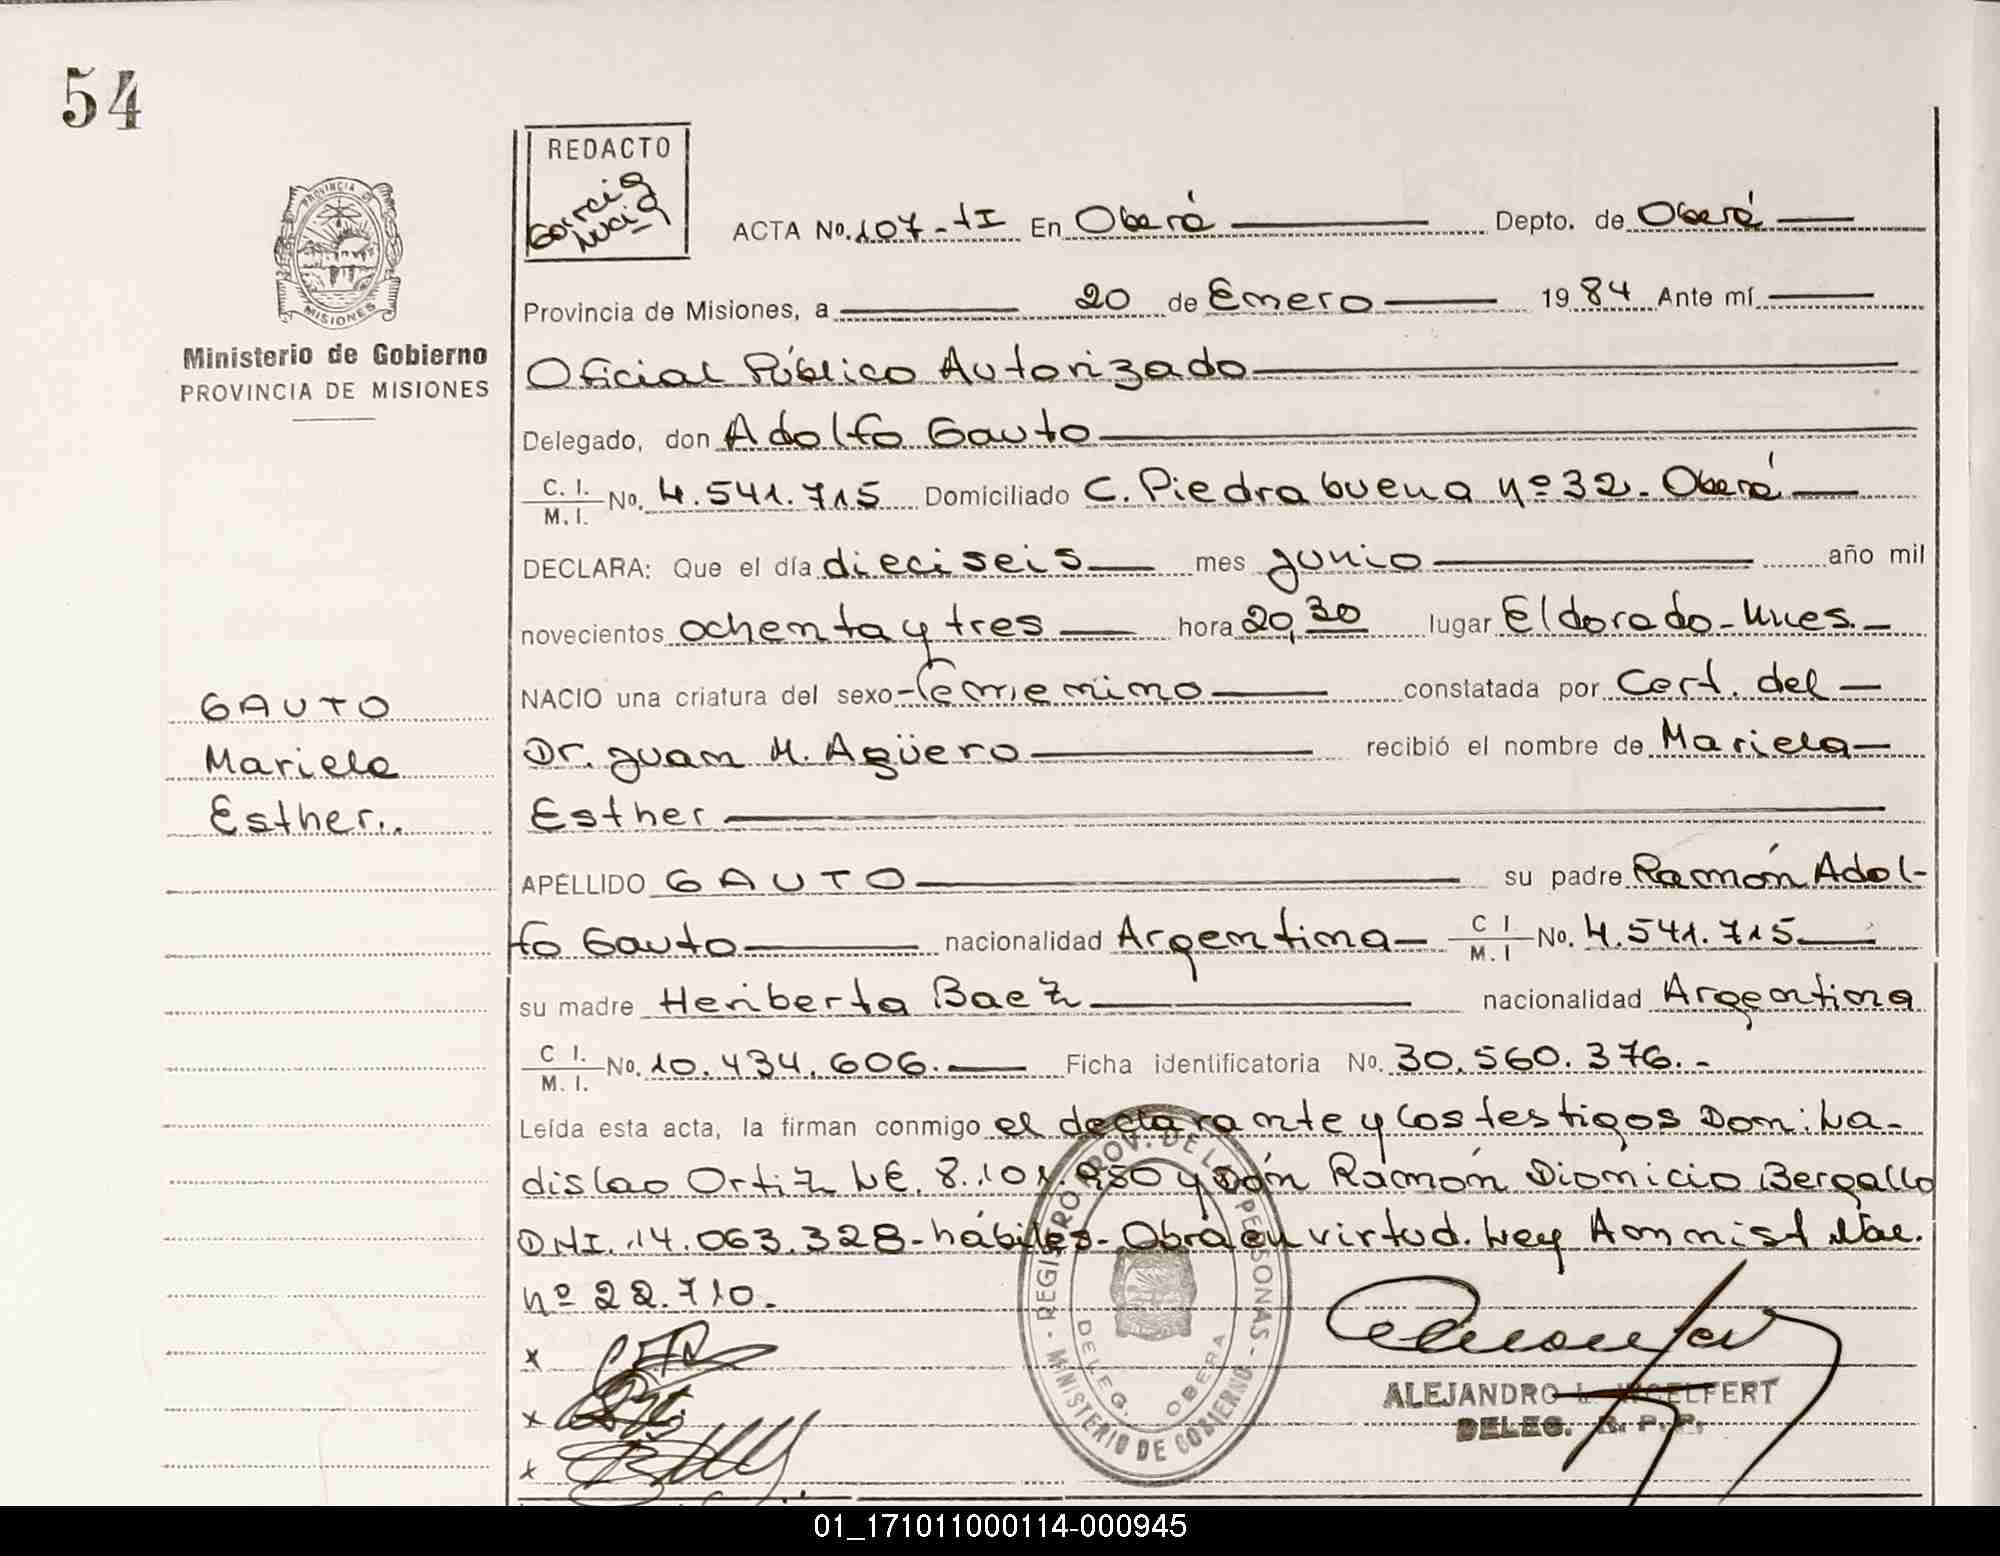 54
REDACTO
Garcia
Lucia
PROVINCIA D
MISIONES
Ministerio de Gobierno
PROVINCIA DE MISIONES
ACTA No. 107-tI En Oberá Depto. de Oberá
Provincia de Misiones, a 20 de Enero 1984 Ante mí
Oficial Público Autorizado
Delegado, don Adolfo Gauto
C. I. / M. I. No. 4.541.715 Domiciliado C. Piedrabuena nº 32. Oberá
DECLARA: Que el día dieciseis mes junio año mil
novecientos ochenta y tres hora 20,30 lugar Eldorado - Mnes.
NACIO una criatura del sexo femenino constatada por Cert. del
Dr. Juan M. Agüero recibió el nombre de Mariela
Esther
GAUTO
Mariela
Esther..
APELLIDO GAUTO su padre Ramón Adol-
fo Gauto nacionalidad Argentina C I / M. I No. 4.541.715
su madre Heriberta Baez nacionalidad Argentina
C I. / M. I. No. 10.434.606. Ficha identificatoria No. 30.560.376.-
Leída esta acta, la firman conmigo el declarante y los testigos Don: La-
dislao Ortiz LE. 8.101.950 y Dón Ramón Dionicio Bergallo
DNI. 14.063.328 - hábiles - Obra en virtud. Ley Amnist Nac.
nº 22.710.
x
x
x
REGISTRO PROV. DE LAS PERSONAS - MINISTERIO DE GOBIERNO -
DELEG. OBERA
ALEJANDRO
DELEG. R. P. P.
01_171011000114-000945